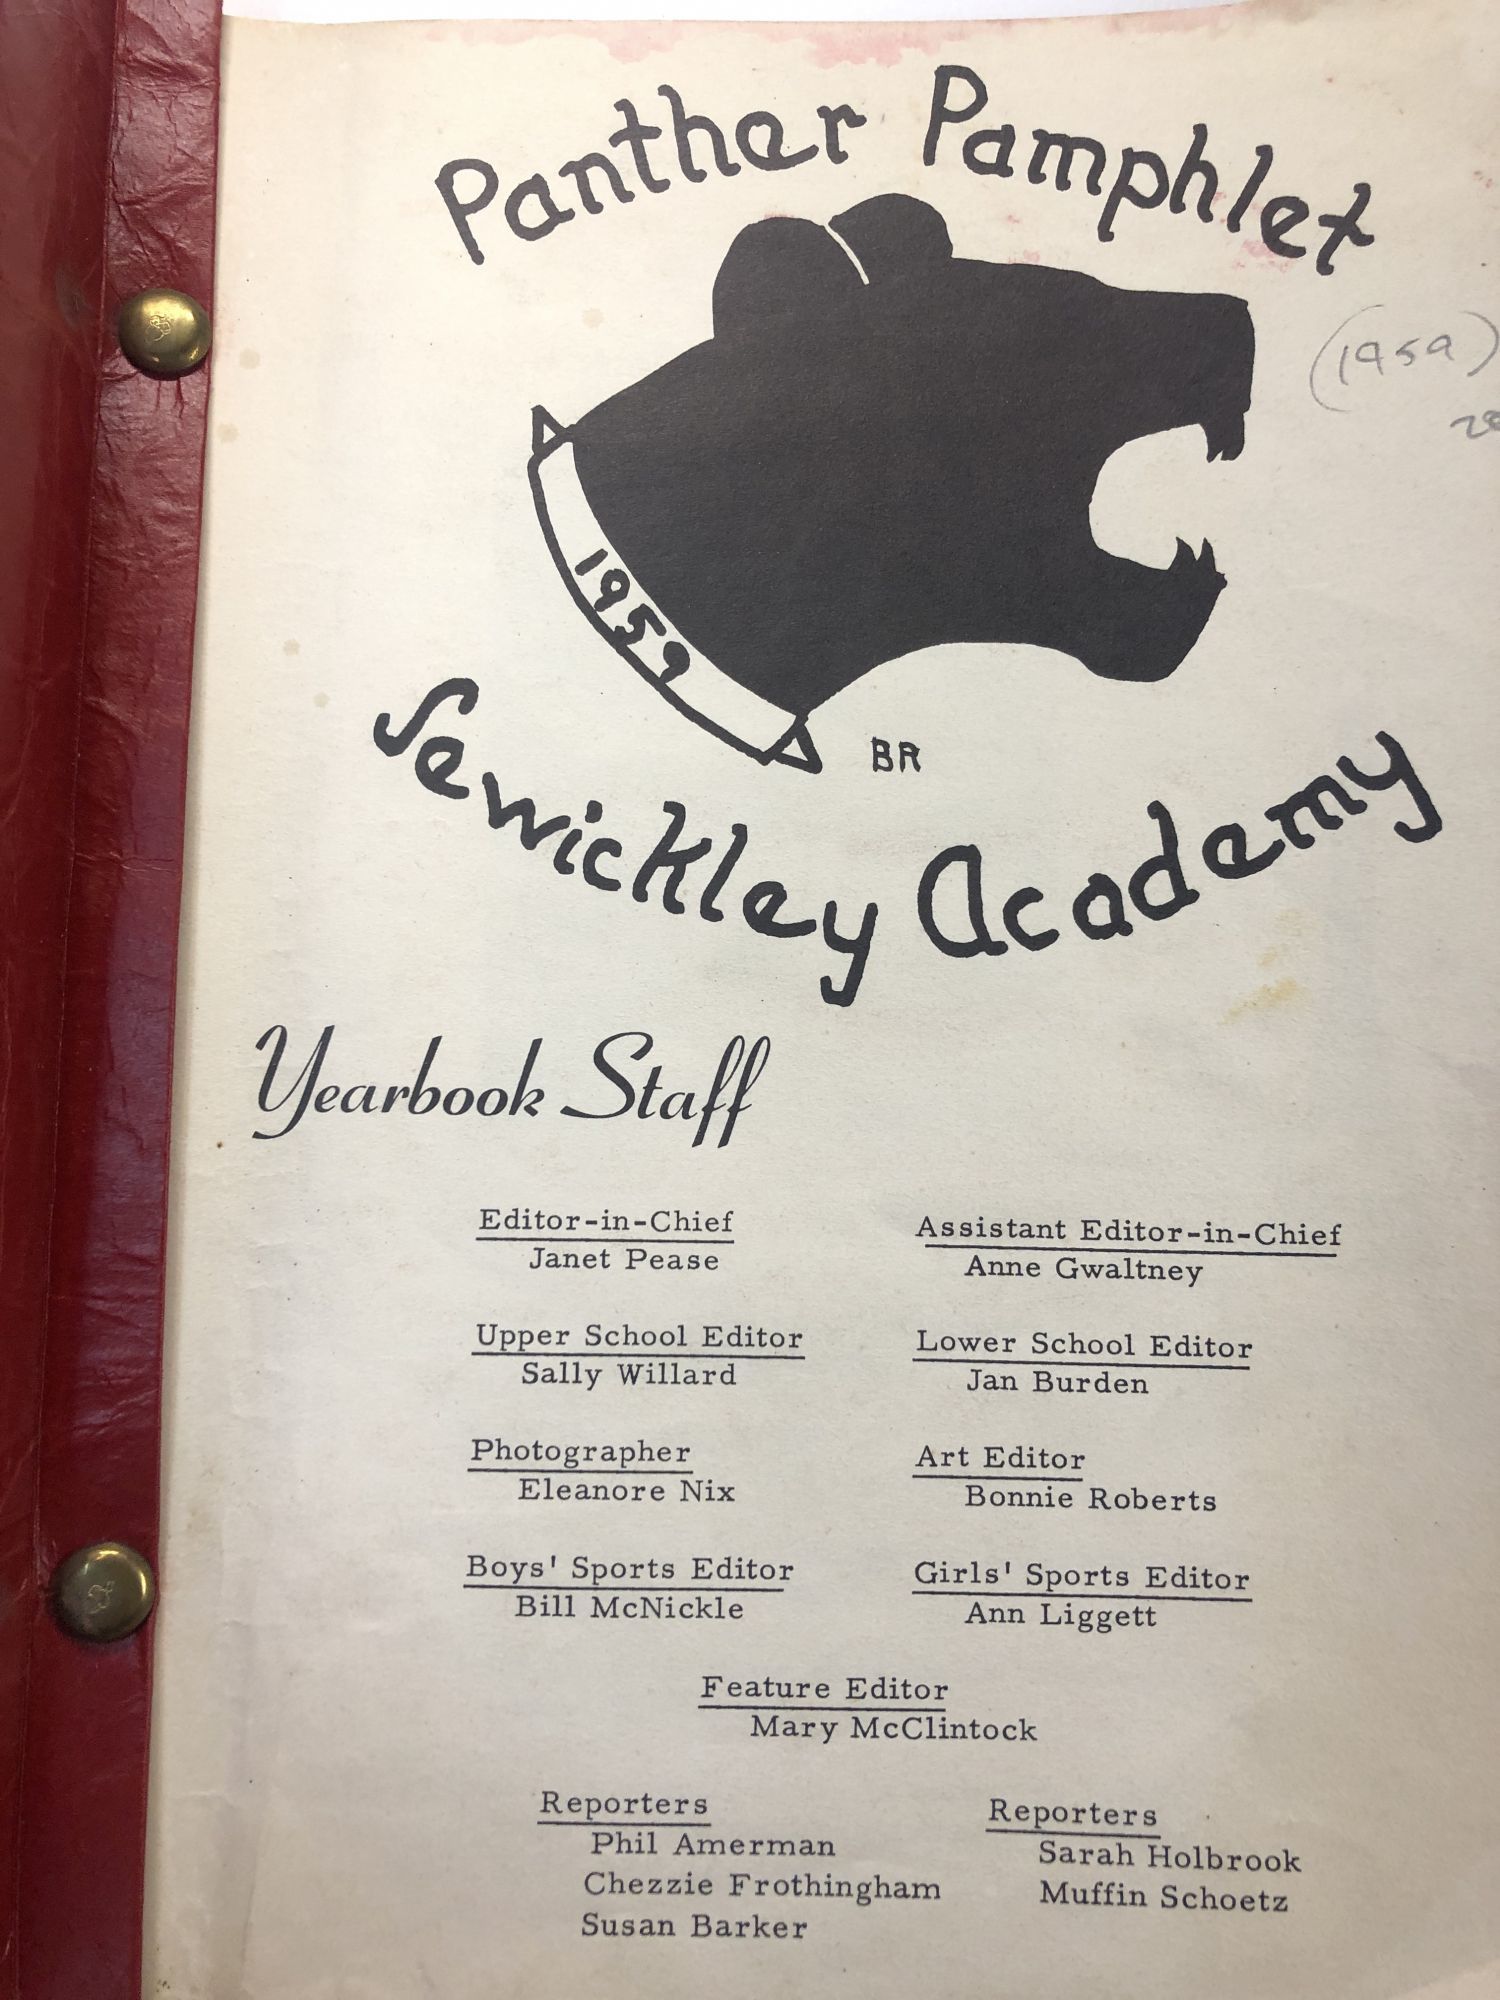 Panther Pamphlet
(1959)
1959
BR
Sewickley Academy
Yearbook Staff
Editor-in-Chief
Janet Pease
Assistant Editor-in-Chief
Anne Gwaltney
Upper School Editor
Sally Willard
Lower School Editor
Jan Burden
Photographer
Eleanore Nix
Art Editor
Bonnie Roberts
Boys' Sports Editor
Bill McNickle
Girls' Sports Editor
Ann Liggett
Feature Editor
Mary McClintock
Reporters
Phil Amerman
Chezzie Frothingham
Susan Barker
Reporters
Sarah Holbrook
Muffin Schoetz